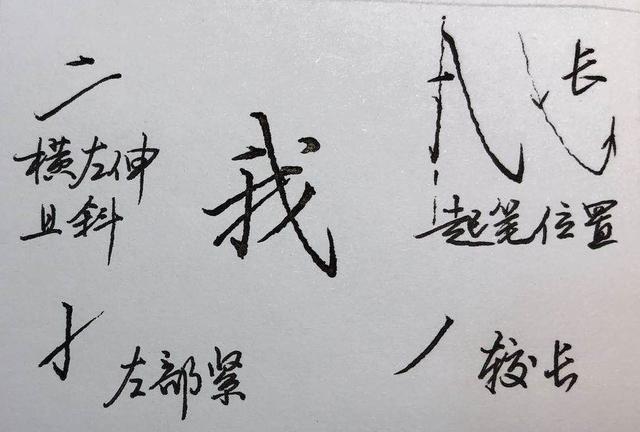 横左伸
且斜
我
长
起笔位置
左部紧
较长